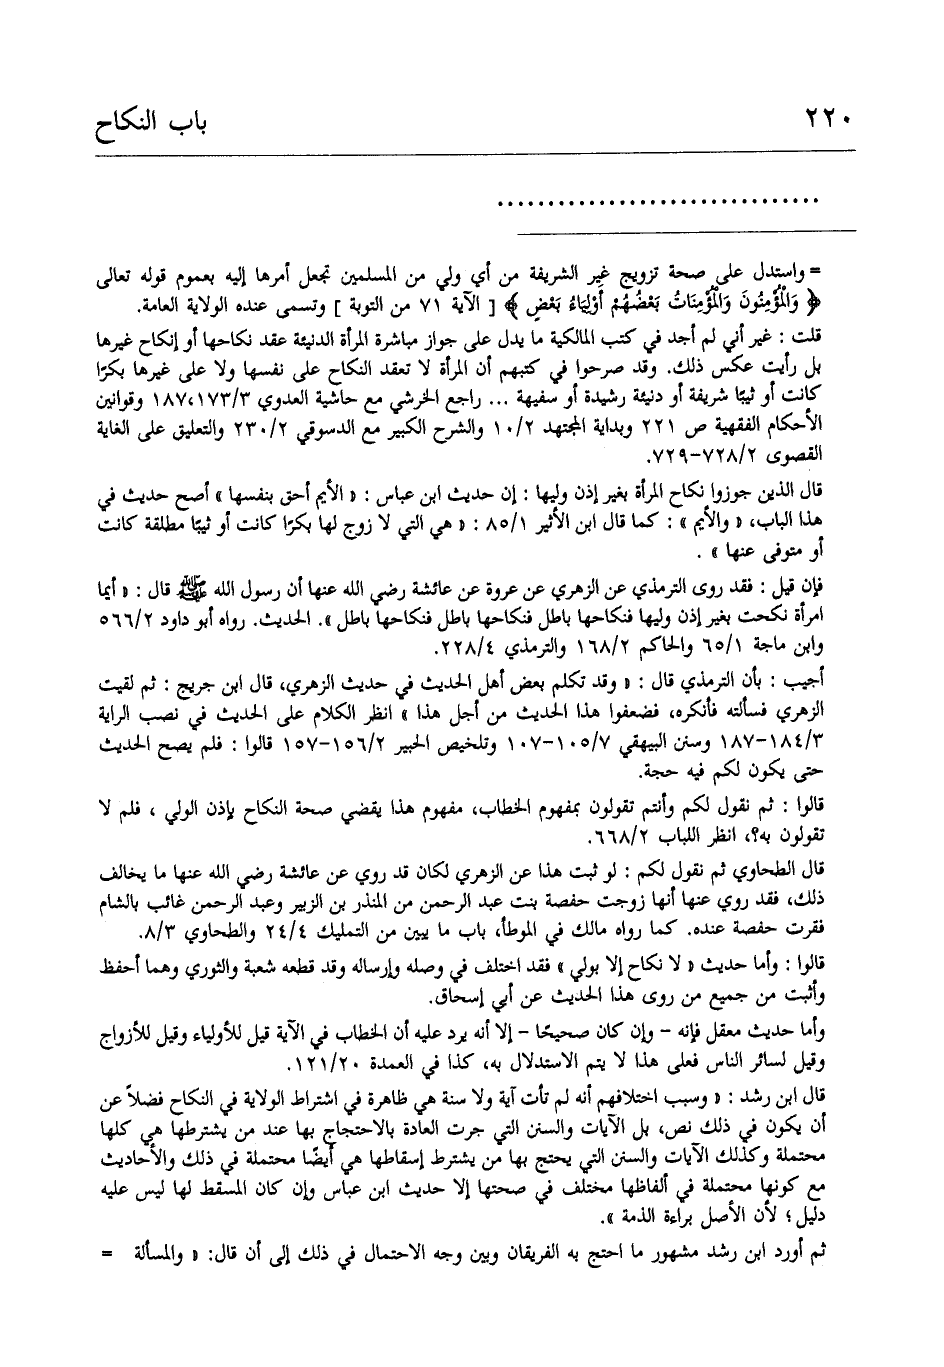 ٢٢٠ باب النكاح
................................
= واستدل على صحة تزويج غير الشريفة من أي ولي من المسلمين تجعل أمرها إليه بعموم قوله تعالى
﴿ وَالْمُؤْمِنُونَ وَالْمُؤْمِنَاتُ بَعْضُهُمْ أَوْلِيَاءُ بَعْضٍ ﴾ [ الآية ٧١ من التوبة ] وتسمى عنده الولاية العامة.
قلت : غير أني لم أجد في كتب المالكية ما يدل على جواز مباشرة المرأة الدنيئة عقد نكاحها أو إنكاح غيرها
بل رأيت عكس ذلك. وقد صرحوا في كتبهم أن المرأة لا تعقد النكاح على نفسها ولا على غيرها بكرًا
كانت أو ثيبًا شريفة أو دنيئة رشيدة أو سفيهة ... راجع الخرشي مع حاشية العدوي ١٨٧،١٧٣/٣ وقوانين
الأحكام الفقهية ص ٢٢١ وبداية المجتهد ١٠/٢ والشرح الكبير مع الدسوقي ٢٣٠/٢ والتعليق على الغاية
القصوى ٧٢٨/٢-٧٢٩.
قال الذين جوزوا نكاح المرأة بغير إذن وليها : إن حديث ابن عباس : « الأيم أحق بنفسها » أصح حديث في
هذا الباب، « والأيم » : كما قال ابن الأثير ٨٥/١ : « هي التي لا زوج لها بكرًا كانت أو ثيبًا مطلقة كانت
أو متوفى عنها » .
فإن قيل : فقد روى الترمذي عن الزهري عن عروة عن عائشة رضي الله عنها أن رسول الله ﷺ قال : « أيما
امرأة نكحت بغير إذن وليها فنكاحها باطل فنكاحها باطل فنكاحها باطل ». الحديث. رواه أبو داود ٥٦٦/٢
وابن ماجة ٦٥/١ والحاكم ١٦٨/٢ والترمذي ٢٢٨/٤.
أجيب : بأن الترمذي قال : « وقد تكلم بعض أهل الحديث في حديث الزهري، قال ابن جريج : ثم لقيت
الزهري فسألته فأنكره، فضعفوا هذا الحديث من أجل هذا » انظر الكلام على الحديث في نصب الراية
١٨٤/٣-١٨٧ وسنن البيهقي ١٠٥/٧-١٠٧ وتلخيص الحبير ١٥٦/٢-١٥٧ قالوا : فلم يصح الحديث
حتى يكون لكم فيه حجة.
قالوا : ثم نقول لكم وأنتم تقولون بمفهوم الخطاب، مفهوم هذا يقضي صحة النكاح بإذن الولي ، فلم لا
تقولون به؟، انظر اللباب ٦٦٨/٢.
قال الطحاوي ثم نقول لكم : لو ثبت هذا عن الزهري لكان قد روي عن عائشة رضي الله عنها ما يخالف
ذلك، فقد روي عنها أنها زوجت حفصة بنت عبد الرحمن من المنذر بن الزبير وعبد الرحمن غائب بالشام
فقرت حفصة عنده. كما رواه مالك في الموطأ، باب ما يبين من التمليك ٢٤/٤ والطحاوي ٨/٣.
قالوا : وأما حديث « لا نكاح إلا بولي » فقد اختلف في وصله وإرساله وقد قطعه شعبة والثوري وهما أحفظ
وأثبت من جميع من روى هذا الحديث عن أبي إسحاق.
وأما حديث معقل فإنه - وإن كان صحيحًا - إلا أنه يرد عليه أن الخطاب في الآية قيل للأولياء وقيل للأزواج
وقيل لسائر الناس فعلى هذا لا يتم الاستدلال به، كذا في العمدة ١٢١/٢٠.
قال ابن رشد : « وسبب اختلافهم أنه لم تأت آية ولا سنة هي ظاهرة في اشتراط الولاية في النكاح فضلاً عن
أن يكون في ذلك نص، بل الآيات والسنن التي جرت العادة بالاحتجاج بها عند من يشترطها هي كلها
محتملة وكذلك الآيات والسنن التي يحتج بها من يشترط إسقاطها هي أيضًا محتملة في ذلك والأحاديث
مع كونها محتملة في ألفاظها مختلف في صحتها إلا حديث ابن عباس وإن كان المسقط لها ليس عليه
دليل ؛ لأن الأصل براءة الذمة ».
ثم أورد ابن رشد مشهور ما احتج به الفريقان وبين وجه الاحتمال في ذلك إلى أن قال: « والمسألة =